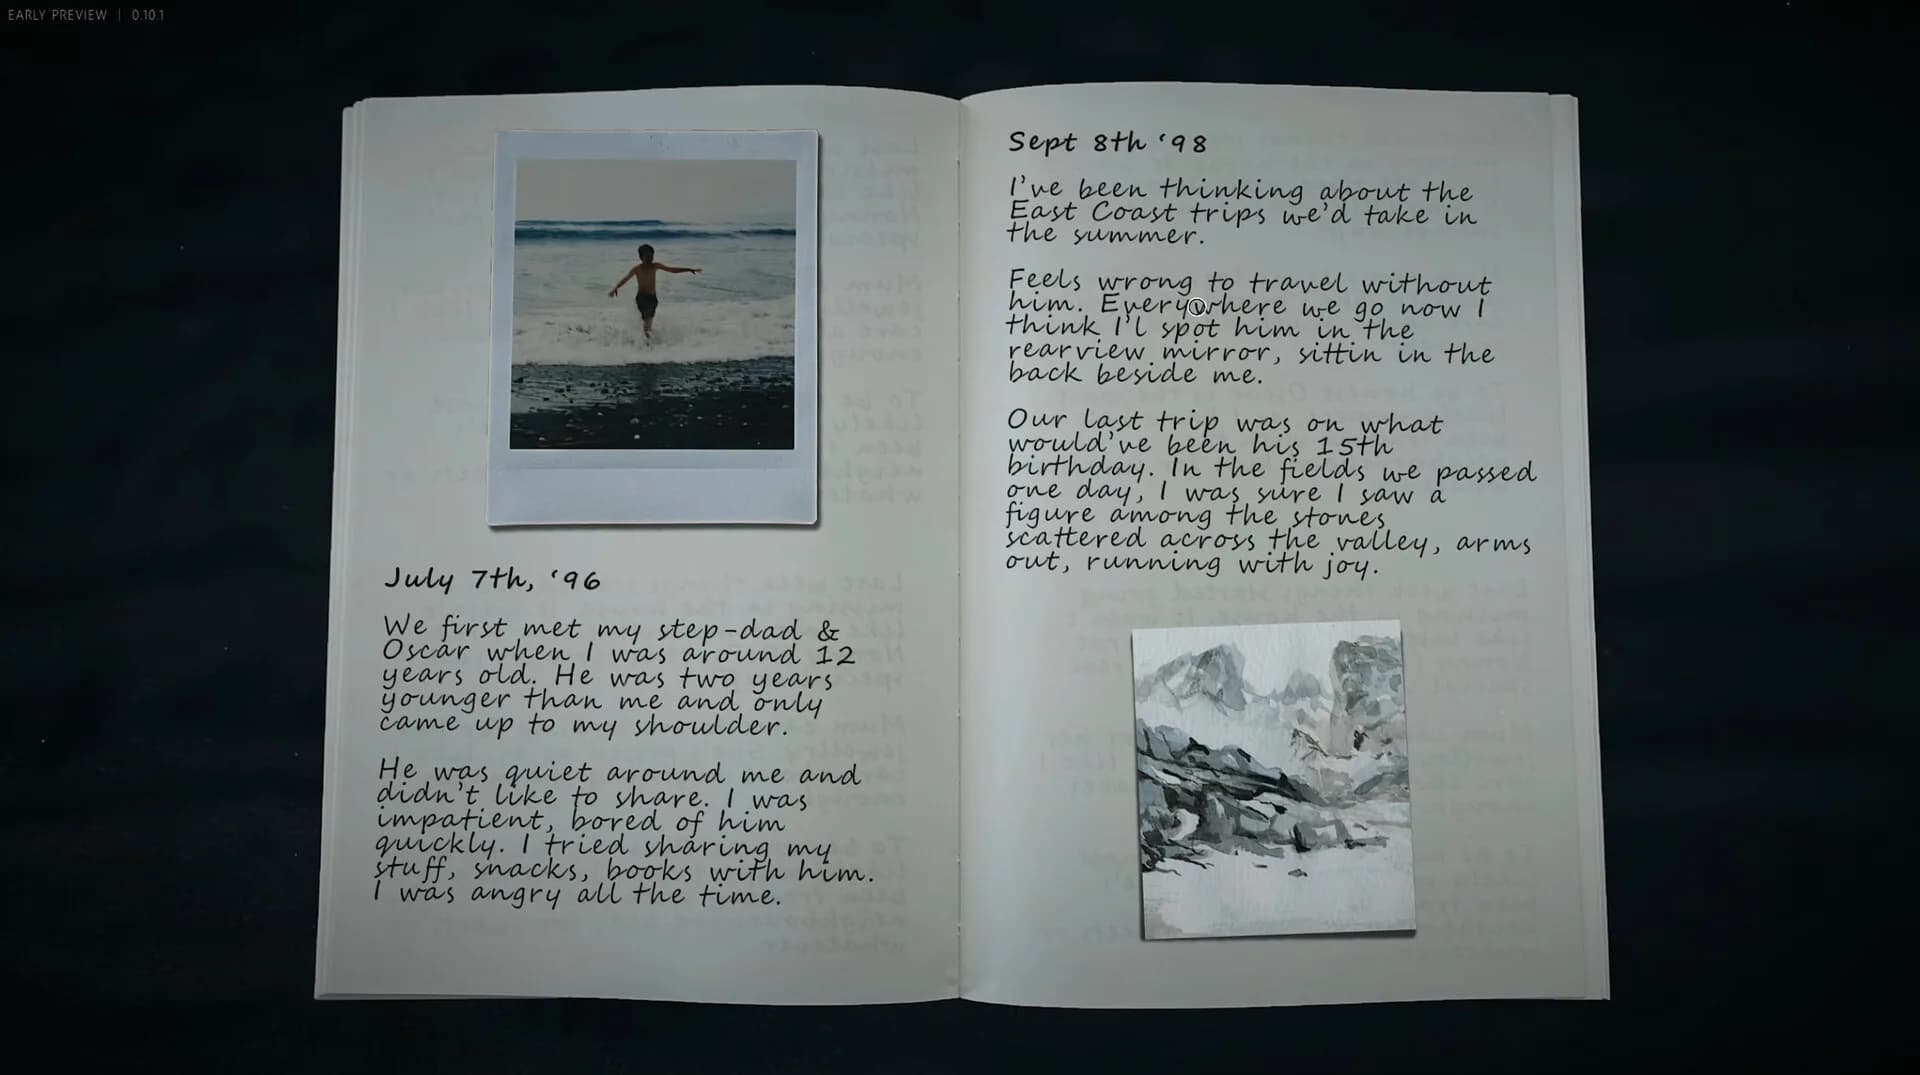 EARLY PREVIEW | 0.10.1
July 7th, ‘96
We first met my step-dad &
Oscar when I was around 12
years old. He was two years
younger than me and only
came up to my shoulder.
He was quiet around me and
didn't like to share. I was
impatient, bored of him
quickly. I tried sharing my
stuff, snacks, books with him.
I was angry all the time.
Sept 8th ‘98
I've been thinking about the
East Coast trips we'd take in
the summer.
Feels wrong to travel without
him. Everywhere we go now I
think I'l spot him in the
rearview mirror, sittin in the
back beside me.
Our last trip was on what
would've been his 15th
birthday. In the fields we passed
one day, I was sure I saw a
figure among the stones
scattered across the valley, arms
out, running with joy.